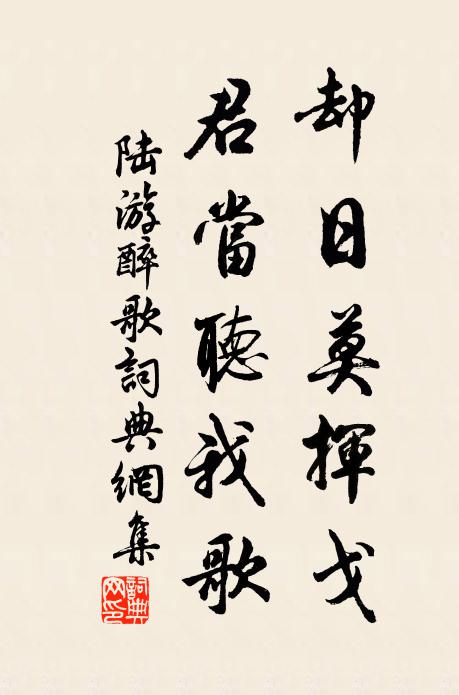 却日莫揮戈
君當聽我歌
陸游醉歌詞典網集
詞典網印